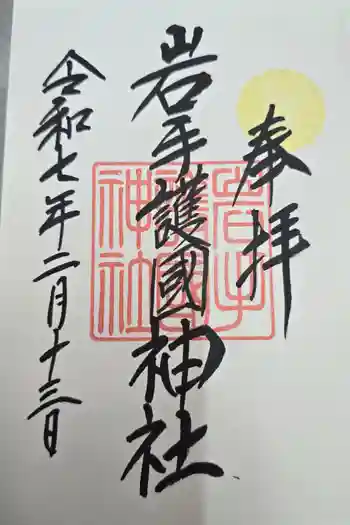 奉拝
岩手護國神社
令和七年二月十三日
岩手護國神社